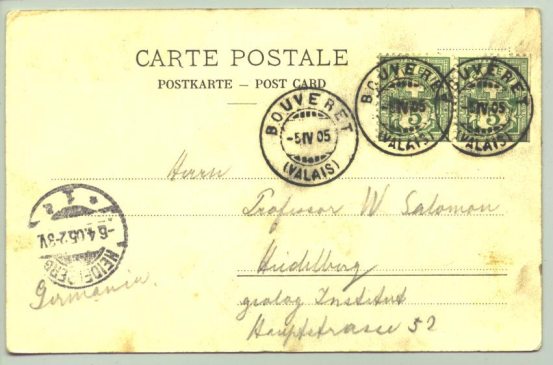 CARTE POSTALE
POSTKARTE – POST CARD
BOUVERET
-5 IV 05
(VALAIS)
BOUVERET
IV 05
(VALAIS)
5
BOUVERET
-5 IV 05
(VALAIS)
5
Herrn
Professor W Salomon
Heidelberg
geolog Institut
Hauptstrasse 52
-6.4.05.2-3V.
HEIDELBERG
Germania.